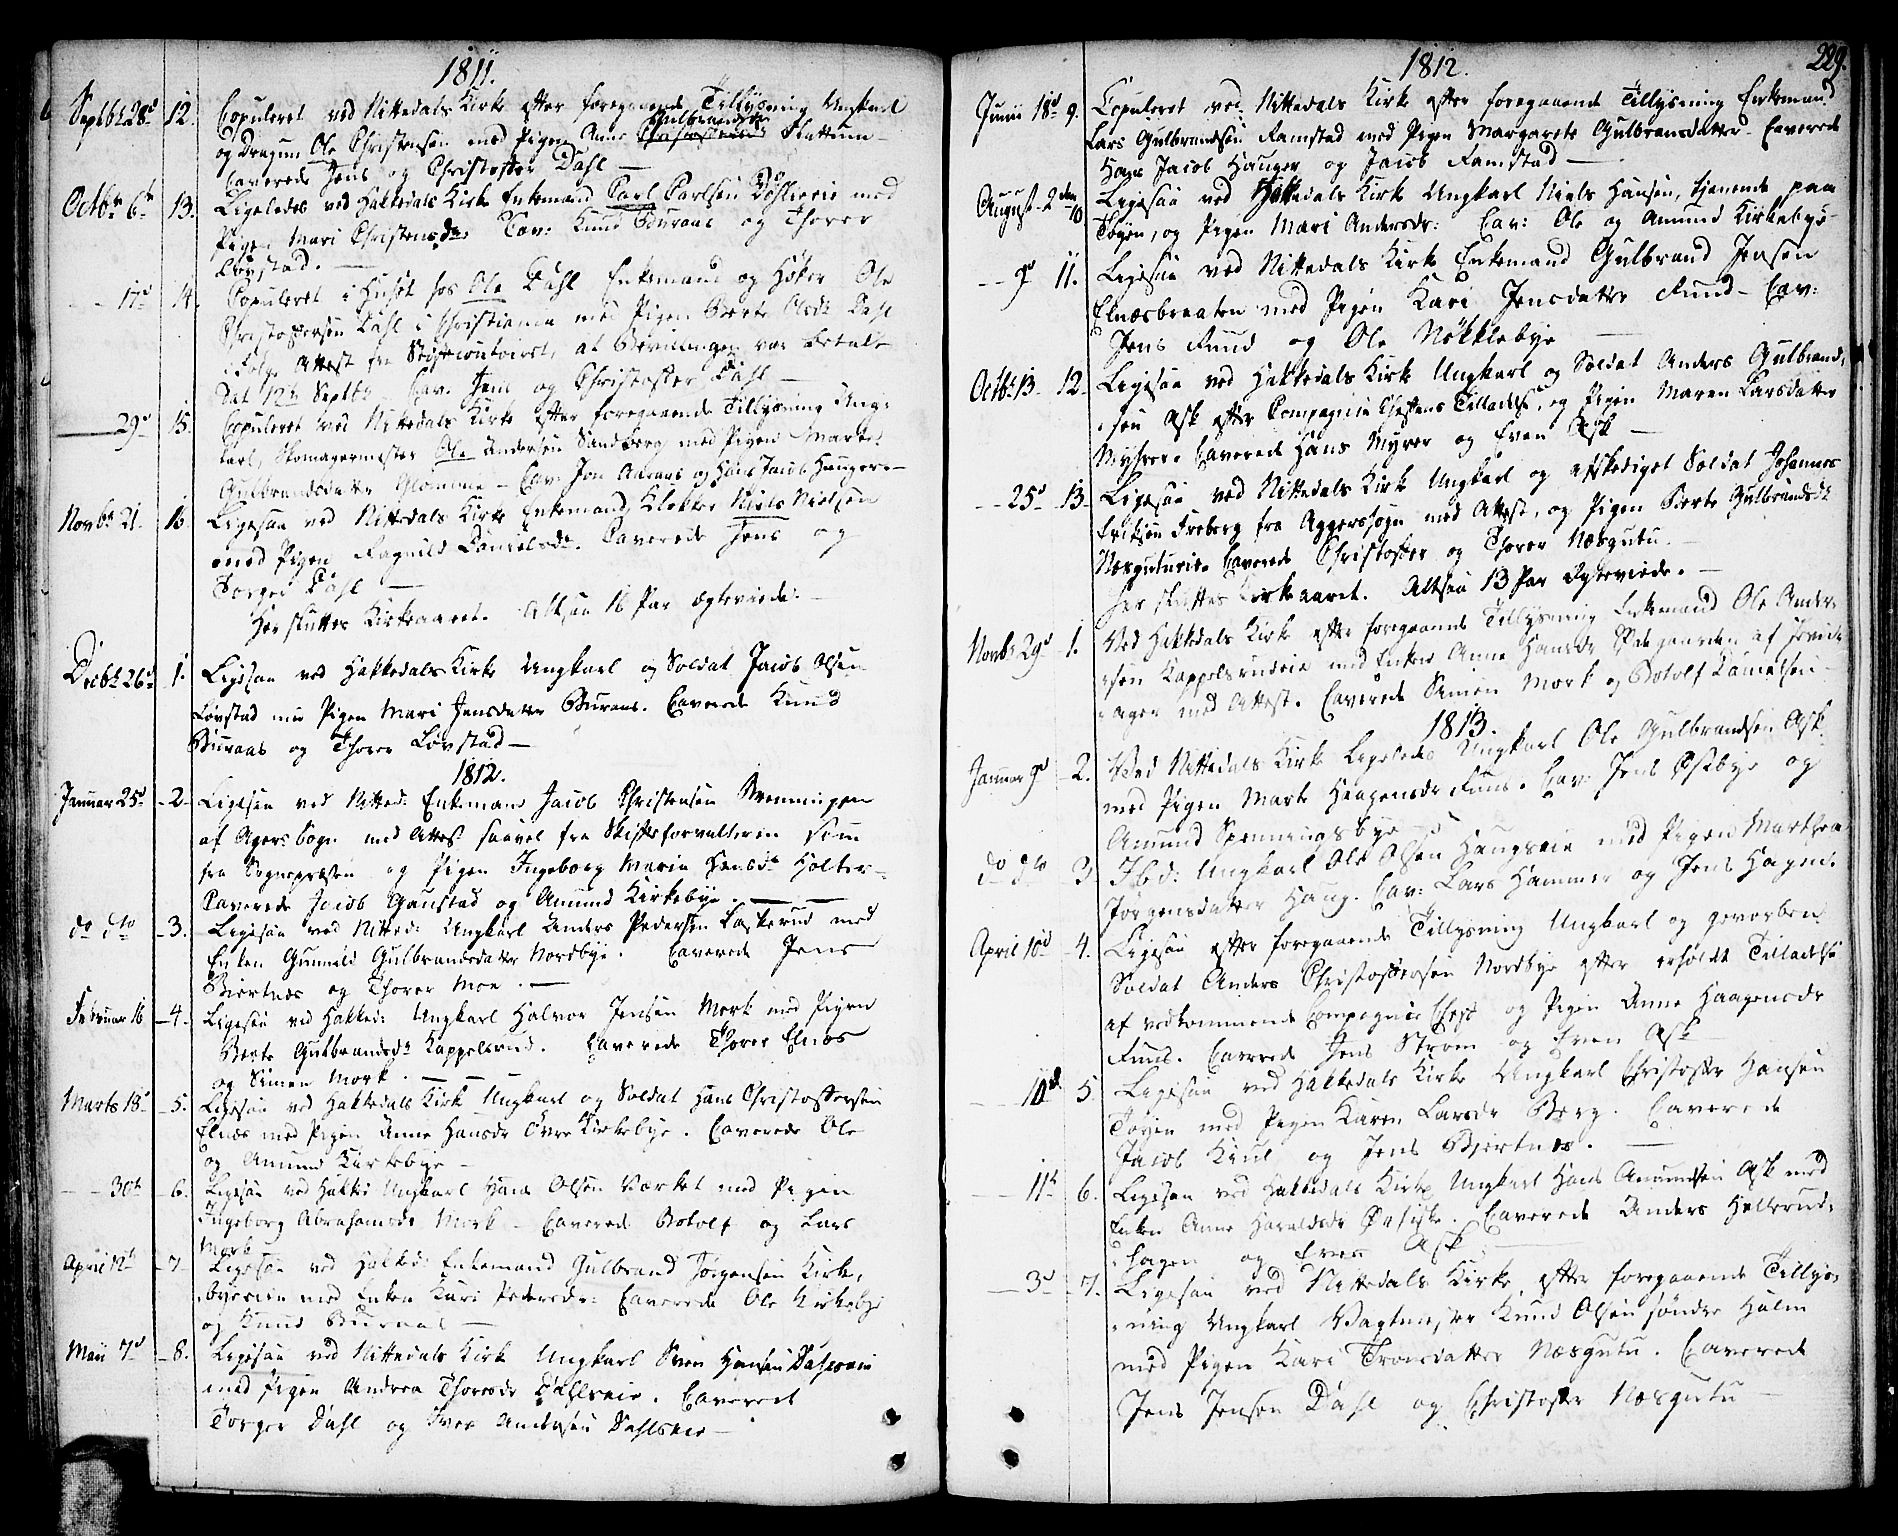 1811.
Septbr 28d 12. Copuleret ved Nittedals Kirke efter foregaaende Tillysning Ungkarl
og Dragun Ole Christensen med Pigen Anne Gulbrandsdr Slattum
Caverede Jens og Christoffer Dahl —
Octbr 6te 13. Ligeledes ved Hakkedals Kirke Enkemand Carl Carlsen Döhlieeie med
Pigen Mari Christensdr. Cav: Knud Buraas og Thorer
Lövstad. —
17d 14. Copuleret i Huset hos Ole Dahl Enkemand og Höker Ole
Christophersen Dahl i Christiania med Pigen Berte Olsdr Dahl
i Følge Attest fra Stiftscontoiret, at Bevillingen var betalt
Dat 12te Septbr. Cav. Jens og Christoffer Dahl —
29d 15. Copuleret ved Nittedals Kirke efter foregaaende Tillysning Ung-
karl, Skomagermester Ole Andersen Sandberg med Pigen Marthe
Gulbrandsdatter Glomme — Cav. Jon Aaraas og Hans Jacob Haugere —
Novbr 21 16. Ligesaa ved Nittedals Kirke Enkemand Klokker Niels Nielsen
med Pigen Ragnild Danielsdr. Caverede Jens og
Torger Dahl —
Her sluttes Kirkeaaret. Altsaa 16 Par ægteviede. —
Decbr 26d 1. Ligesaa ved Hakkedals Kirke Ungkarl og Soldat Jacob Olsen
Lövstad med Pigen Mari Jensdatter Buraas. Caverede Knud
Buraas og Thorer Lövstad —
1812.
Januar 25d 2. Ligesaa ved Nitted: Enkemand Jacob Christensen Svenningen
af Agers Sogn med Attest saavel fra Skifteforvalteren som
fra Sognepræsten og Pigen Ingeborg Maria Hansdr Holter —
Caverede Jacob Gaustad og Amund Kirkebye. —
do dto 3. Ligesaa ved Nitted: Ungkarl Anders Pedersen Laskerud med
Enken Gunnild Gulbrandsdatter Nordbye. Caverede Jens
Biertnæs og Thorer Moe. —
Februar 16 4. Ligesaa ved Hakked: Ungkarl Halvor Jensen Mork med Pigen
Berte Gulbrandsdr Kappelsrud. Caverede Thorer Elnæs
og Simen Mork. —
Marts 18d 5. Ligesaa ved Hakkedals Kirke Ungkarl og Soldat Hans Christophersen
Elnæs med Pigen Anne Hansdr övre Kirkebye. Caverede Ole
og Amund Kirkebye —
30te 6. Ligesaa ved Hakke: Ungkarl Hans Olsen Værket med Pigen
Ingeborg Abrahamsdr Mork — Caverede Botolf og Lars
Mork —
April 12te 7. Ligesaa ved Hakked: Enkemand Gulbrand Jörgensen Kirke-
byeeie med Enken Kari Pedersdr: Caverede Ole Kirkebye
og Knud Buraas —
Maii 7d 8. Ligesaa ved Nittedals Kirke Ungkarl Sven Hansen Dahlseie
med Pigen Andrea Thorsdr Dahlseie. Caverede
Torger Dahl og Iver Andersen Dahlseie —
1812. 229.
Junii 18d 9. Copuleret ved Nittedals Kirke efter foregaaende Tillysning Enkemand
Lars Gulbrandsen Ramstad med Pigen Margarete Gulbransdatter — Caverede
Hans Jacob Hauger og Jacob Ramstad —
August 2den 10 Ligesaa ved Hakkedals Kirk Ungkarl Niels Hansen, tjenende paa
Töyen, og Pigen Mari Andersdr: Cav: Ole og Amund Kirkebye
9d 11. Ligesaa ved Nittedals Kirk Enkemand Gulbrand Jensen
Elnæsbraaten med Pigen Kari Jensdatter Rund — Cav:
Jens Rund og Ole Nökklebye —
Octbr 13 12. Ligesaa ved Hakkedals Kirk Ungkarl og Soldat Anders Gulbrand-
sen Ask efter Compagnie Chefens Tilladelse, og Pigen Maren Larsdatter
Myhrer. Caverede Hans Myrer og Even Ask —
25d 13. Ligesaa ved Nittedals Kirk Ungkarl og afskediget Soldat Johannes
Eriksen Freberg fra Aggerssogn med Attest, og Pigen Berte Gulbrandsdr
Næsguturie. Caverede Christoffer og Thorer Næsgutu. —
Her sluttes Kirkeaaret. Altsaa 13 Par Ægteviede. —
Novbr 29d 1. Ved Hakkedals Kirke efter foregaaende Tillysning Enkemand Ole Ander-
sen Kappelsrudeie med Enken Anne Hansdr af
ager med Attest. Caverede Simen Mork og Botolf Danielsen —
1813.
Januar 9d 2. Ved Nittedals Kirke Ligeledes Ungkarl Ole Gulbrandsen Ask
med Pigen Marte Haagensdr Ruus. Cav: Jens Östbye og
Amund Spenningsbye —
do do 3. Ibd: Ungkarl Ole Olsen Haugseie med Pigen Marthea
Jörgensdatter Haug. Cav: Lars Hammer og Jens Hagen.
April 10d 4. Ligesaa efter foregaaende Tillysning Ungkarl og gevorben
Soldat Anders Christoffersen Nordbye efter erholdt Tilladelse
af vedkommende Compagnie Chef og Pigen Anne Haagensdr
Ruus. Caverede Jens Ström og Even Ask
10d 5. Ligesaa ved Hakkedals Kirke Ungkarl Christoffer Hansen
Töyen med Pigen Karen Larsdr Berg. Caverede
Jacob Kiul og Jens Bjertnæs. —
11te 6. Ligesaa ved Hakkedals Kirke Ungkarl Hans Amundsen Ask med
Enken Anne Haraldsdr . Caverede Anders Hellerud-
hagen og Even Ask
3d 7. Ligesaa ved Nittedals Kirke efter foregaaende Tillys-
ning Ungkarl Vagtmester Knud Olsen söndre Holm
med Pigen Kari Tronsdatter Næsgutu. Caverede
Jens Jensen Dahl og Christoffer Næsgutu —